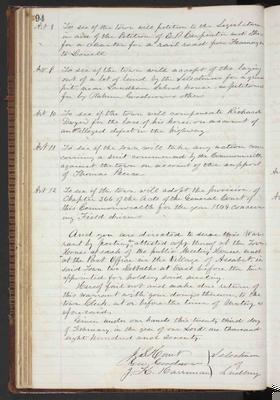 94
Art 8 To see if the town will petition to the Legislature
in aid of the Petition of and others
for a charter for a rail road from Framingham
to Lowell
Art 9 To see if the town will accept of the laying
out of a lot of land by the Selectmen for a gravel
pit near Landham School house as petitioned
for by and others
Art 10 To see if the town will compensate Richard
for the loss of his horse on account of
an alleged defect in the highway
Art 11 To see if the town will take any action con
cerning a suit commenced by the Commonwealth
against the town on account of the support
of Thomas
Art 12 To see if the town will adopt the provision of
Chapter of the Acts of the General Court of
this Commonwealth for the year concern
ing
And you are directed to serve this War
rant by posting attested copy thereof at the Town
House at each of the public Meeting Houses and
at the Post Office in the Village of Assabet in
said Town ten Sabbaths at least before the time
appointed for holding said meeting
Hereof fail not and make due return of
this warrant with your doings thereon, to the
Town Clerk at or before the time of meeting a
foresaid
Given under our hands this twenty third day
of February in the year of our Lord one thousand
eight hundred and seventy
Hunt
Geo. Goodnow
J. H. Harriman
Selectmen
of
Sudbury